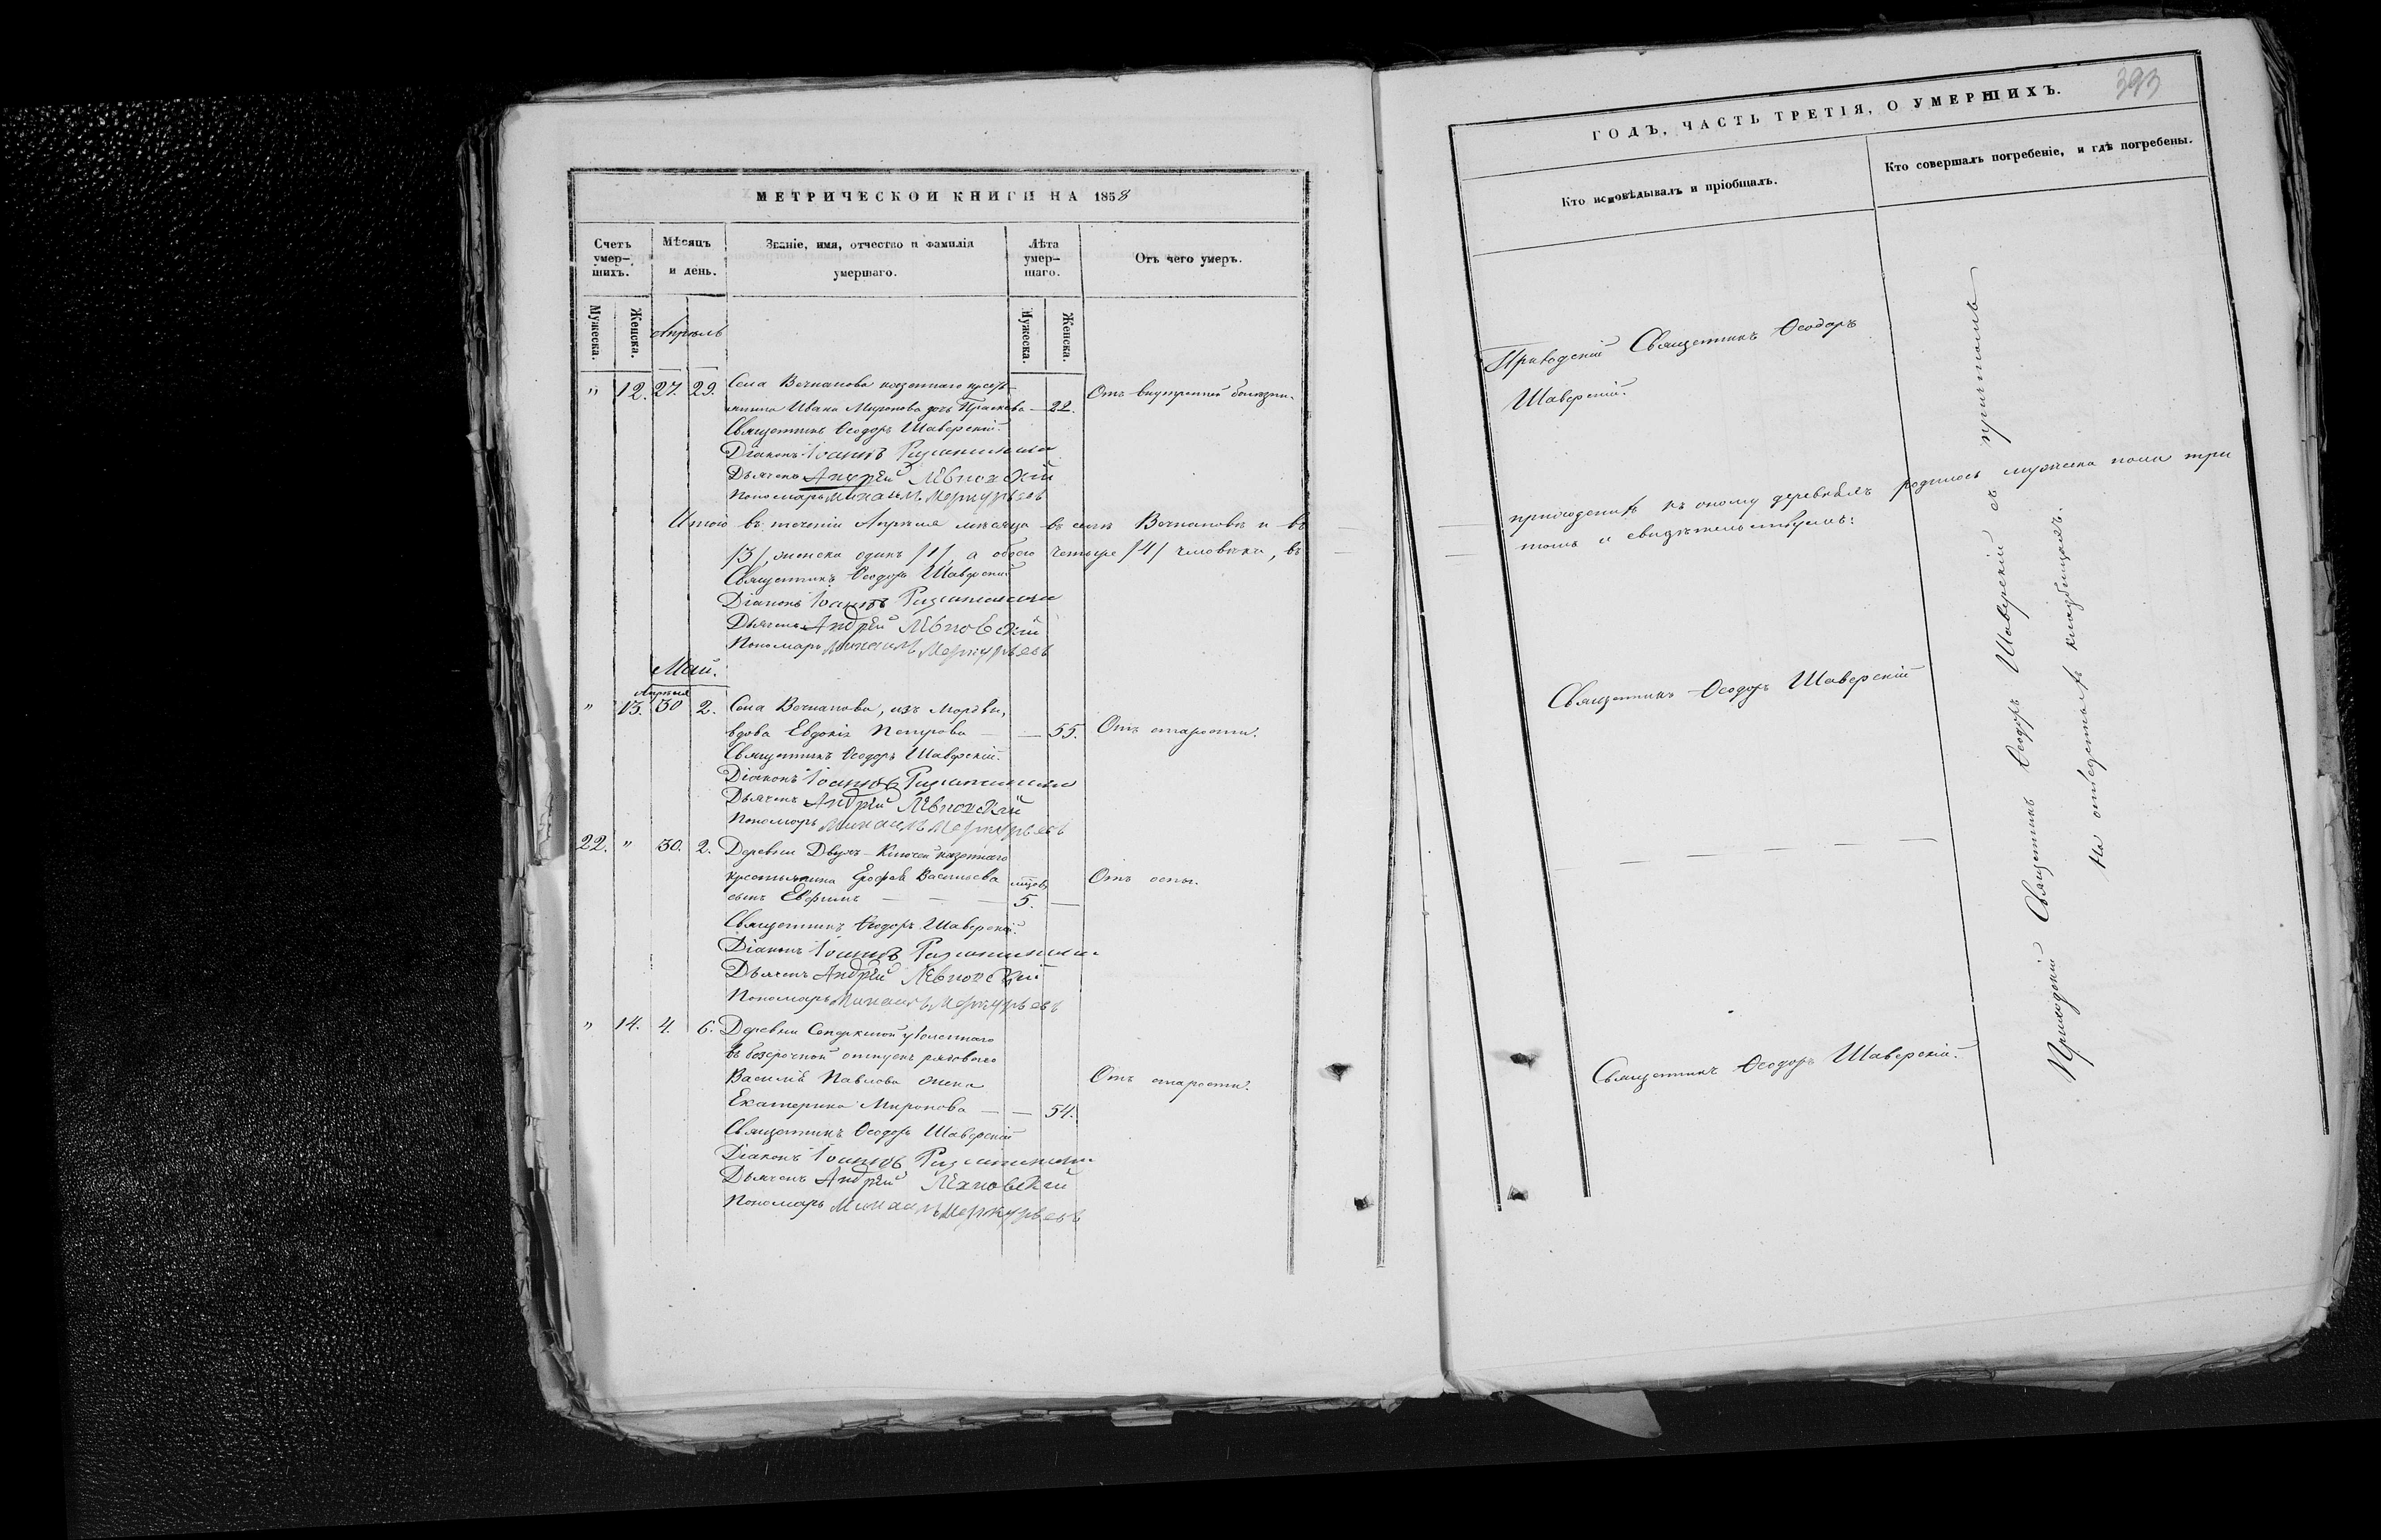 МЕТРИЧЕСКОЙ КНИГИ НА 1858
Счетъ умер-шихъ.
Мѣсяцъ и день.
Званіе, имя, отчество и фамилія умершаго.
Лѣта умер-шаго.
Отъ чего умеръ.
Мужеска.
Женска.
Апрѣль
Мужеска.
Женска.
" 12. 27. 29. Села Вечканова казеннаго кресть-
янина Ивана Миронова дочь Прасковья — 22. Отъ внутренней болѣзни.
Священникъ Ѳеодоръ Шаверскій.
Діаконъ Іоаннъ
Дьячекъ Андрей
Пономарь Михаилъ Меркурьевъ
Итого въ теченіи Апрѣля мѣсяца въ селѣ Вечкановѣ и въ
/3/, женска одинъ /1/, а обоего четыре /4/ человѣка, въ
Священникъ Ѳеодоръ Шаверскій
Діаконъ Іоаннъ
Дьячекъ Андрей
Пономарь Михаилъ Меркурьевъ
Май.
Апрѣля
" 13. 30 2. Села Вечканова, изъ Мордвы,
вдова Евдокія Петрова — — 55. Отъ старости.
Священникъ Ѳеодоръ Шаверскій.
Діаконъ Іоаннъ
Дьячекъ Андрей
Пономарь Михаилъ Меркурьевъ
22. " 30. 2. Деревни Двухъ-Ключей казеннаго
крестьянина Ерофея Васильева Отъ оспы.
сынъ Евфимъ — — — 5. —
Священникъ Ѳеодоръ Шаверскій.
Діаконъ Іоаннъ
Дьячекъ Андрей
Пономарь Михаилъ Меркурьевъ
" 14. 4. 6. Деревни уволеннаго
въ безсрочной отпускъ рядоваго
Василія Павлова жена Отъ старости.
Екатерина Миронова — — 54.
Священникъ Ѳеодоръ Шаверскій
Діаконъ Іоаннъ
Дьячекъ Андрей
Пономарь Михаилъ Меркурьевъ
393
ГОДЪ, ЧАСТЬ ТРЕТІЯ, О УМЕРШИХЪ.
Кто исповѣдывалъ и пріобщалъ.
Кто совершалъ погребеніе, и гдѣ погребены.
Приходскій Священникъ Ѳеодоръ
Шаверскій.
приходскихъ къ оному деревняхъ родилось мужеска пола три
томъ и свидѣтельствуемъ:
Священникъ Ѳеодоръ Шаверскій
— — — — —
Священникъ Ѳеодоръ Шаверскій.
Приходскій Священникъ Ѳеодоръ Шаверскій съ причтомъ
На отведенныхъ кладбищахъ.